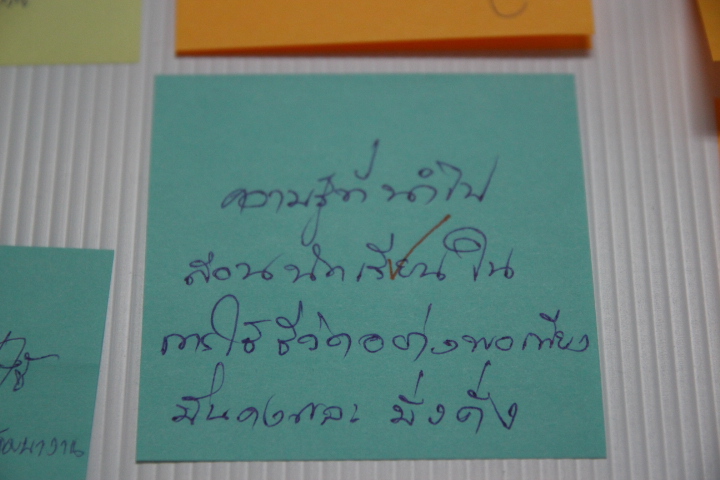 ความรู้ที่นำไป
สอนนักเรียนใน
การใช้ชีวิตอย่างพอเพียง
มั่นคงและ มั่งคั่ง
ใช้
พัฒนางาน